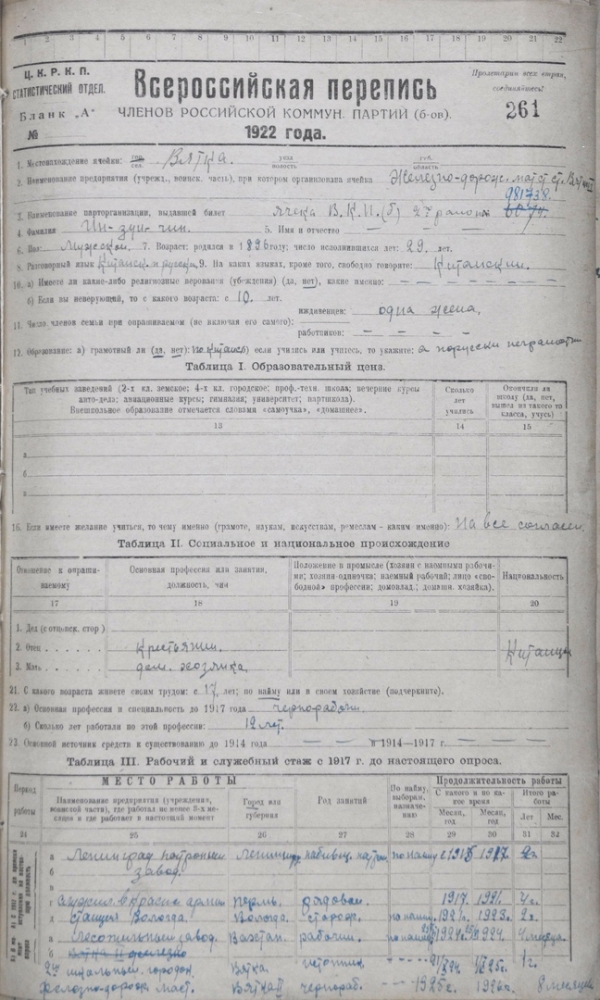 1 2 3 4 5 6 7 8 9 10 11 12 13 14 15 16 17 18 19 20 21 22
Ц. К. Р. К. П.
СТАТИСТИЧЕСКИЙ ОТДЕЛ.
Бланк „А"
№
Всероссийская перепись
ЧЛЕНОВ РОССИЙСКОЙ КОММУН. ПАРТИИ (б-ов).
1922 года.
Пролетарии всех стран,
соединяйтесь!
261
1. Местонахождение ячейки: гор. сел. Вятка. уезд волость губ. область
2. Наименование предприятия (учрежд., воинск. часть), при котором организована ячейка Железно-дорожн. маст. ст. Вятка
981738.
3. Наименование парторганизации, выдавшей билет ячека В.К.П.(б) 2го района
4. Фамилия Ин-зун-чин. 5. Имя и отчество — — — —
6. Пол: Мужской. 7. Возраст: родился в 1896 году; число исполнившихся лет: 29. лет.
8. Разговорный язык Китайск. и русский. 9. На каких языках, кроме того, свободно говорите: Китайский.
10. а) Имеете ли какие-либо религиозные верования (убеждения) (да, нет), какие именно: — — — —
б) Если вы неверующий, то с какого возраста: с 10. лет.
11. Число членов семьи при опрашиваемом (не включая его самого): иждивенцев: одна жена.
работников: — — — —
12. Образование: а) грамотный ли (да, нет): по китайск если учились или учитесь, то укажите: а порусски неграмотн
Таблица I. Образовательный ценз.
Тип учебных заведений (2-х кл. земское; 4-х кл. городское; проф.-техн. школа; вечерние курсы
авто-дела; авиационные курсы; гимназия; университет; партшкола).
Внешкольное образование отмечается словами «самоучка», «домашнее».
Сколько лет учились
Окончили ли школу (да, нет, вышел из такого то класса, учусь)
13 14 15
а
б
в
16. Если имеете желание учиться, то чему именно (грамоте, наукам, искусствам, ремеслам - каким именно): На все согласен.
Таблица II. Социальное и национальное происхождение
Отношение к опрашиваемому
Основная профессия или занятия, должность, чин
Положение в промысле (хозяин с наемными рабочими; хозяин-одиночка; наемный рабочий; лицо «свободной» профессии; домовлад.; домашн. хозяйка).
Национальность
17 18 19 20
1. Дед (с отцовск. стор.)
2. Отец Крестьянин.
3. Мать дом. хозяйка.
Китаец
21. С какого возраста живете своим трудом: с 17. лет; по найму или в своем хозяйстве (подчеркните).
22. а) Основная профессия и специальность до 1917 года чернорабоч.
б) Сколько лет работали по этой профессии: 12 лет.
23. Основной источник средств к существованию до 1914 года — в 1914—1917 г. —
Таблица III. Рабочий и служебный стаж с 1917 г. до настоящего опроса.
Период работы
МЕСТО РАБОТЫ
Наименование предприятия (учреждения, воинской части), где работал не менее 3-х месяцев и где работает в настоящий момент
Город или губерния
Род занятий
По найму, выборам, назначению
Продолжительность работы
С какого и по какое время
Месяц, год
Месяц, год
Итого работы
Лет Мес.
24 25 26 27 28 29 30 31 32
а Ленинград патронный Ленинград набивщ. патрон по найму с 1915 1917. 2г.
б завод.
в
г служил в красной армии Пермь. рядовой. 1917. 1921. 4г.
д станция Вологда. Вологда. сторож. по найму 1921. 1923. 2г.
а лесопильный завод. Вахтан. рабочий. по найму 1924 1924. 4 месяца.
б
2й школьный городок. Вятка. истопник. 1924. 1925г. 1г.
Железно-дорож. маст. Вятка чернораб. 1925г. 1926г. 8 месяцев